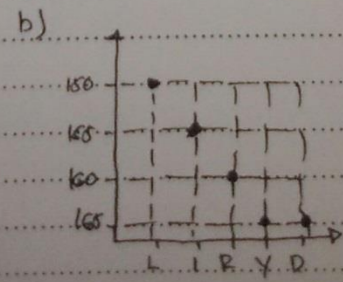 b)
150
155
160
165
L I R Y D